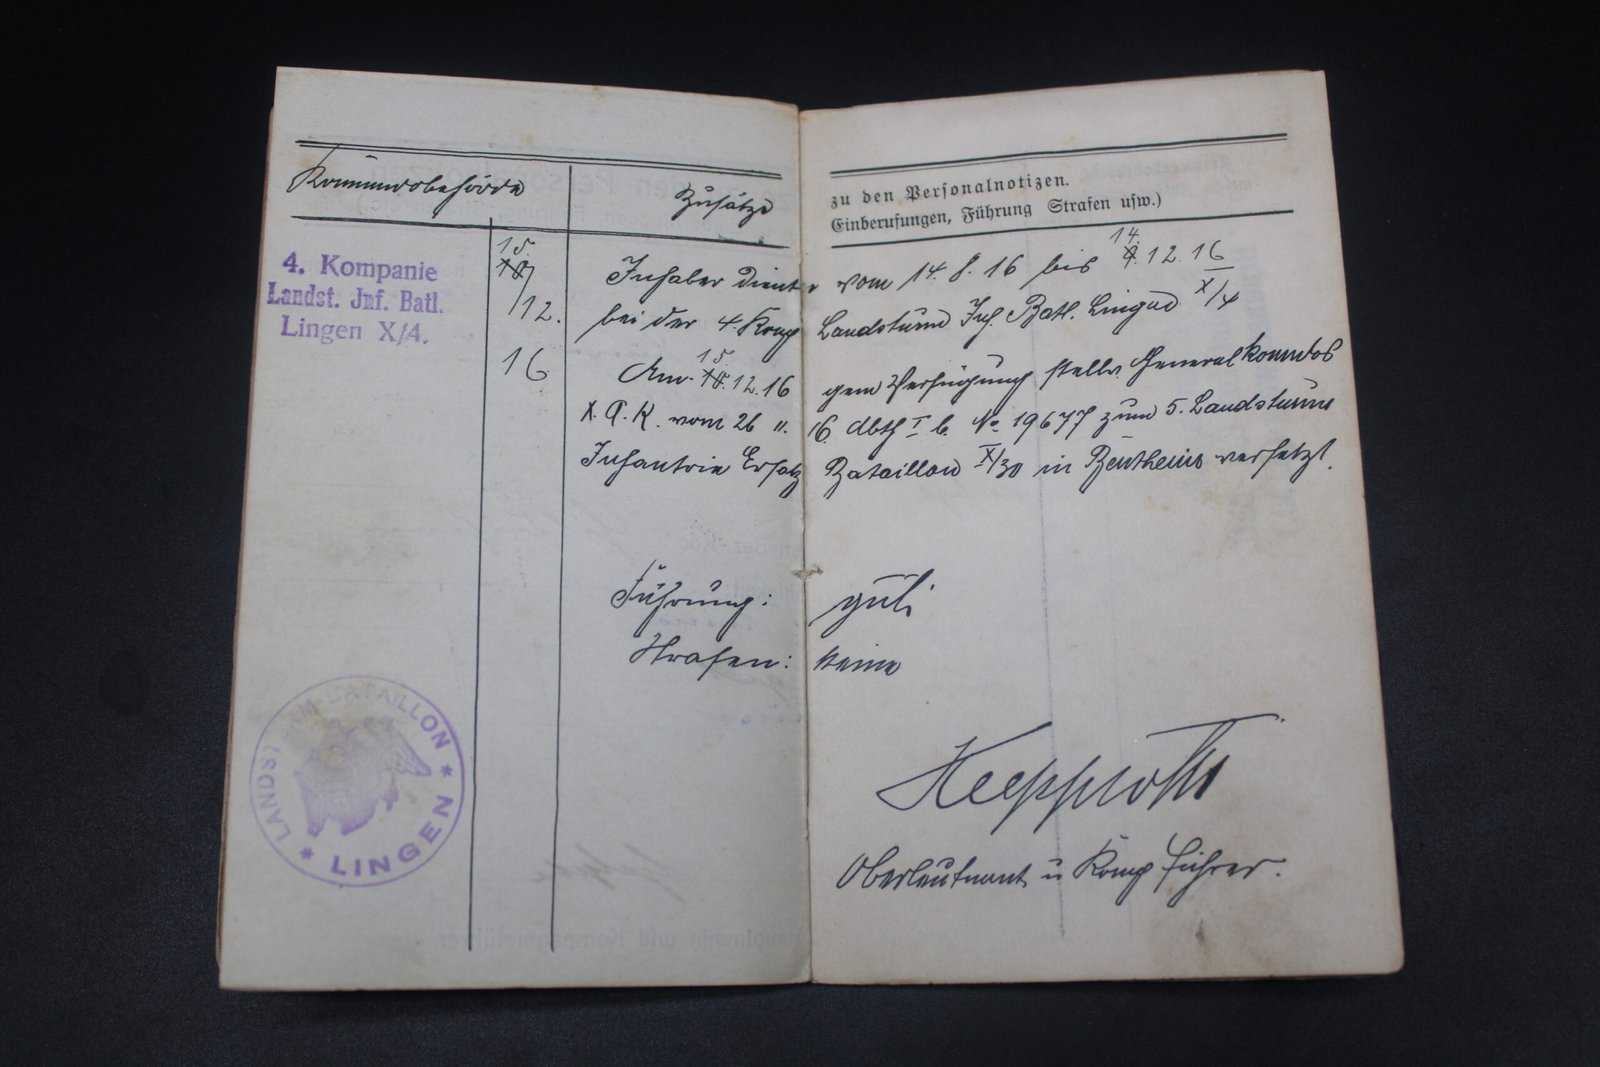 Kommandobehörde
Zusätze
zu den Personalnotizen.
Einberufungen, Führung Strafen usw.)
4. Kompanie
Landst. Inf. Batl.
Lingen X/4.
15.
10/
/12.
16
Inhaber diente vom 14.8.16 bis 14. 9.12.16
bei der 4. Komp Landsturm Inf. Batl. Lingen X/4
Am 15. 10.12.16 gem Verfügung stellv. Generalkomdos
X. A. K. vom 26 11. 16. Abth I b. No 19677 zum 5. Landsturm
Infanterie Ersatz Bataillon X/30 in Bentheim versetzt.
Führung: gut
Strafen: keine
Oberleutnant u Komp Führer.
LANDST BATAILLON
* LINGEN *